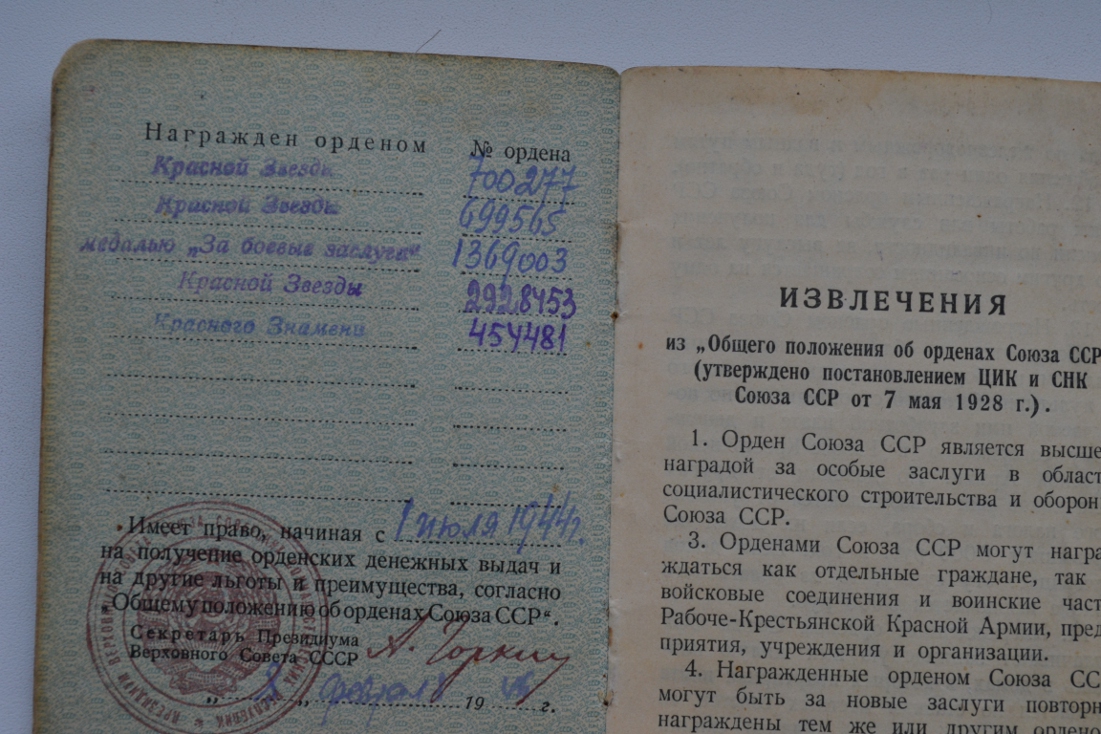 Награжден орденом № ордена
Красной Звезды 700277
Красной Звезды 699565
медалью „За боевые заслуги“ 1369003
Красной Звезды 2928453
Красного Знамени 454481
Имеет право, начиная с 1 июля 1944г.
на получение орденских денежных выдач и
на другие льготы и преимущества, согласно
„Общему положению об орденах Союза ССР“.
Секретарь Президиума
Верховного Совета СССР А. Горкин
„ 8 „ февраля 19 46 г.
ИЗВЛЕЧЕНИЯ
из „Общего положения об орденах Союза ССР
(утверждено постановлением ЦИК и СНК
Союза ССР от 7 мая 1928 г.).
1. Орден Союза ССР является высше
наградой за особые заслуги в област
социалистического строительства и оборон
Союза ССР.
3. Орденами Союза ССР могут награ
ждаться как отдельные граждане, так
войсковые соединения и воинские част
Рабоче-Крестьянской Красной Армии, пред
приятия, учреждения и организации.
4. Награжденные орденом Союза СС
могут быть за новые заслуги повторн
награждены тем же или другим ордено